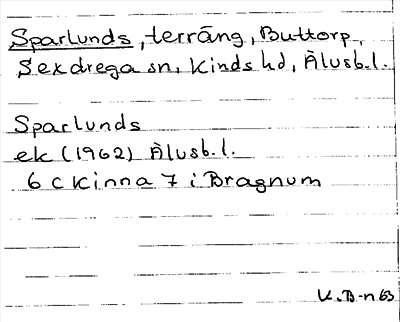 Sparlunds, terräng, Buttorp,
Sexdrega sn, Kinds hd, Älvsb.l.
Sparlunds
ek (1962) Älvsb.l.
6 c Kinna 7 i Bragnum
K.B-n 63